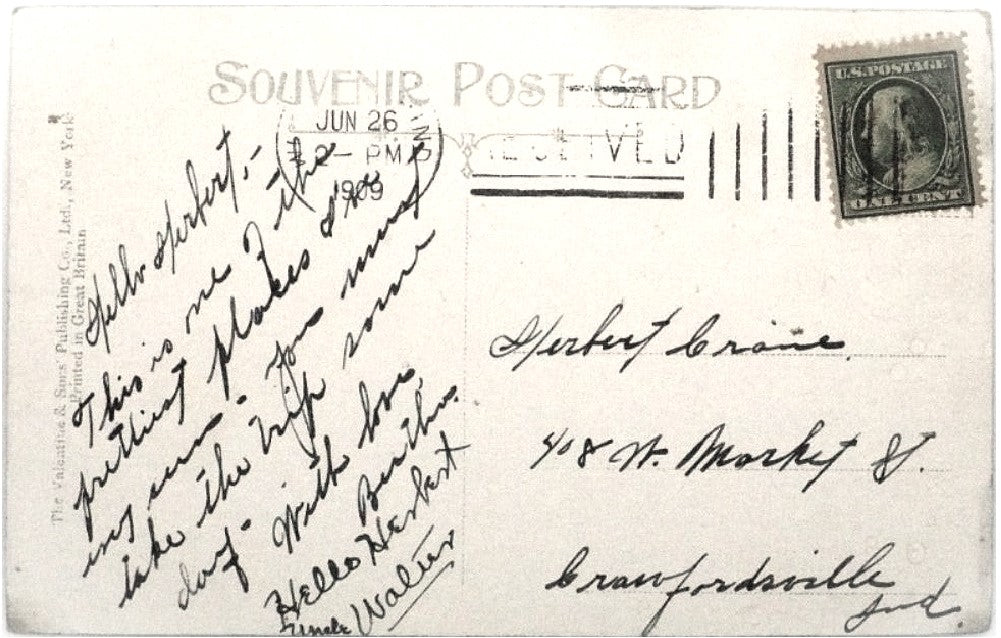 SOUVENIR POST CARD
JUN 26
2 - PM
1909
RECEIVED
U.S. POSTAGE
ONE CENT
The Valentine & Sons' Publishing Co., Ltd., New York
Printed in Great Britain
Hello Herbert,-
This is one of the
prettiest places I've
ever seen. You must
take the trip some
day. With love
Bertha.
Hello Herbert
Uncle Walter
Herbert Crane.
408 W. Market St.
Crawfordsville
Ind.